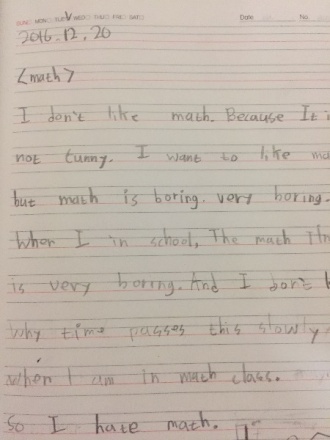 SUN MON TUE WED THU FRI SAT Date No.
2016.12.20
<math>
I don't like math. Because It i
not funny. I want to like ma
but math is boring. very boring.
When I in school, The math
is very boring. And I don't
Why time passes this slowly
when I am in math class.
So I hate math.